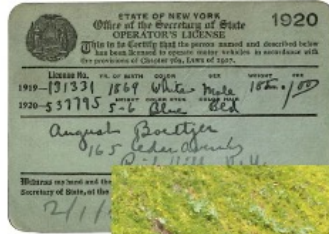 STATE OF NEW YORK
Office of the Secretary of State
OPERATOR'S LICENSE
1920
This is to Certify that the person named and described below
has been licensed to operate motor vehicles in accordance with
the provisions of Chapter 769, Laws of 1917.
License No. YR. OF BIRTH COLOR SEX WEIGHT FEE
1919— 1869 White Male
HEIGHT COLOR EYES COLOR HAIR
1920— 537795 5-6 Blue
August Boettger
165 Cedar
Witness my hand and the
Secretary of State, at the